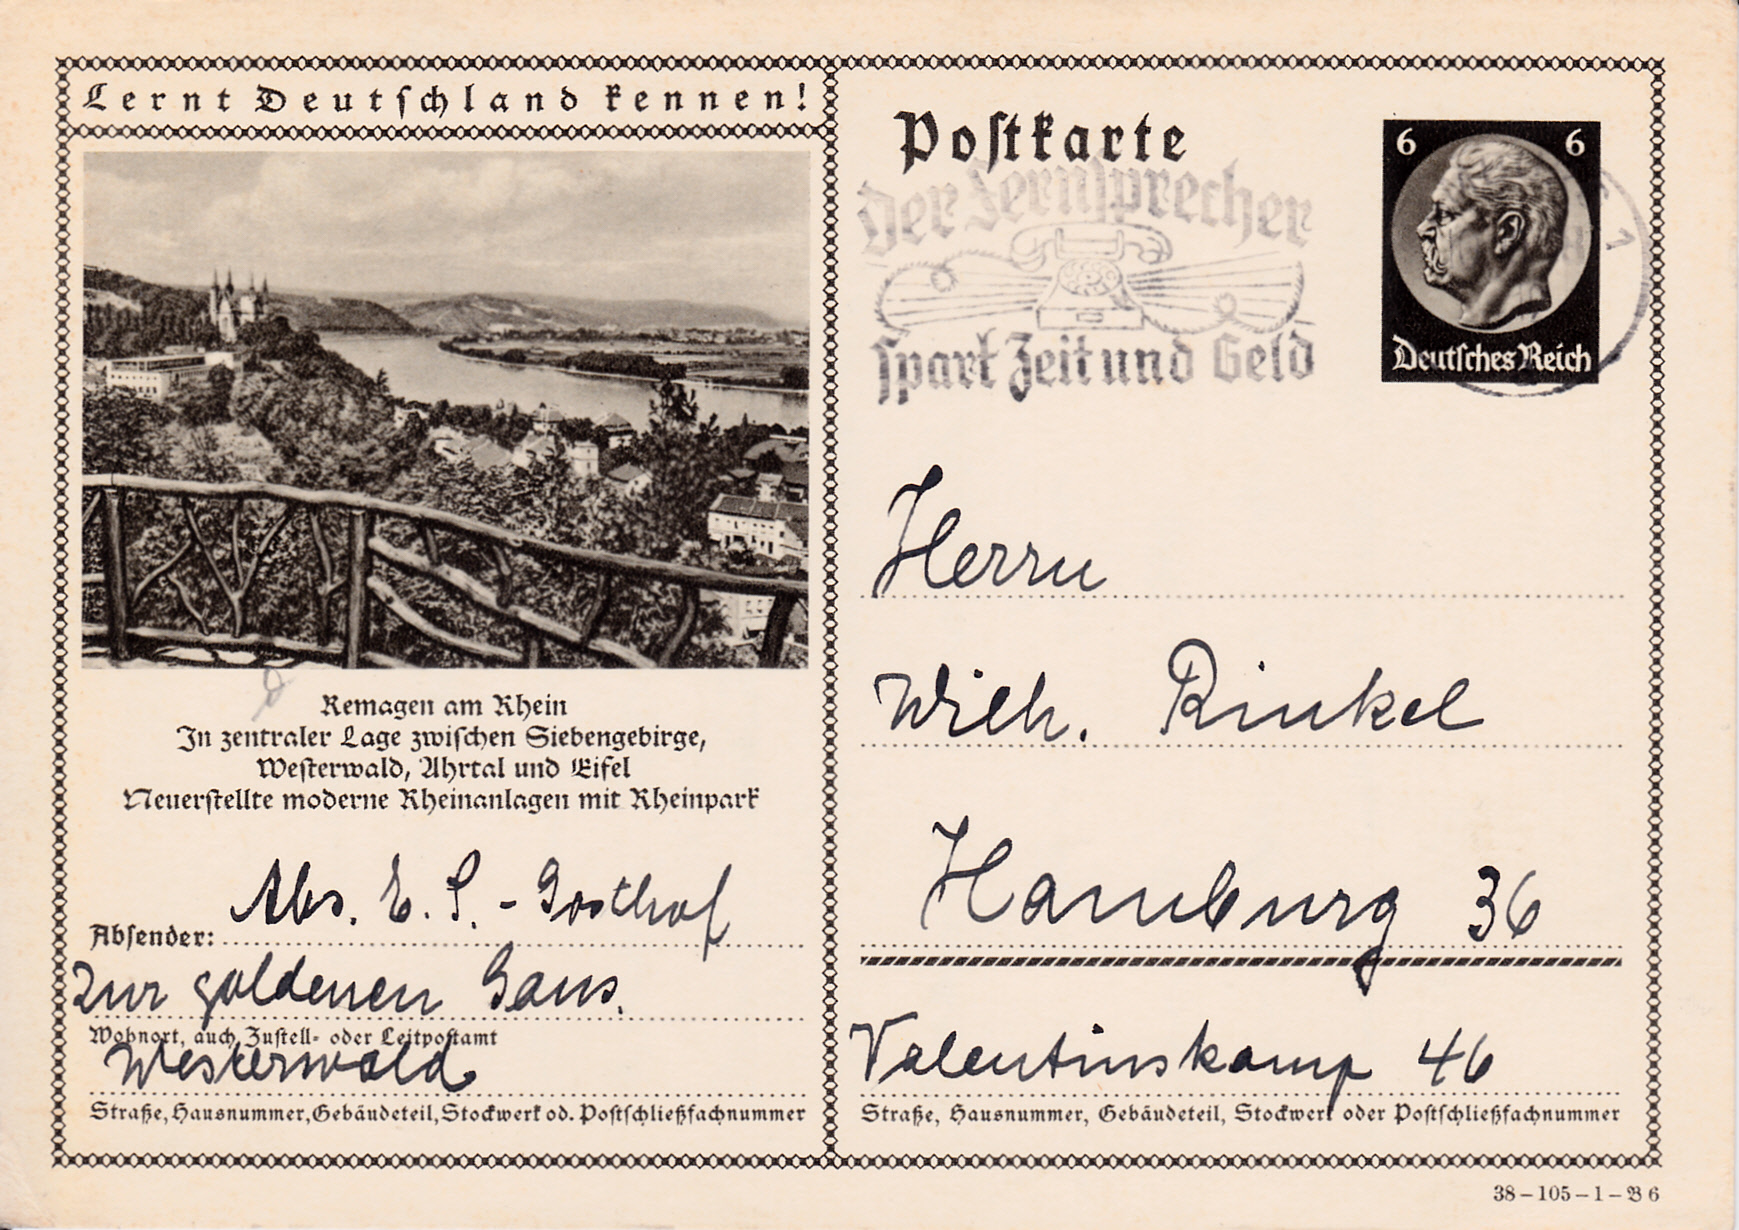 Lernt Deutschland kennen!
Remagen am Rhein
In zentraler Lage zwischen Siebengebirge,
Westerwald, Ahrtal und Eifel
Neuerstellte moderne Rheinanlagen mit Rheinpark
Abs. E. S. - Gosthof
Absender:
Zur goldenen Gans.
Wohnort, auch Zustell- oder Leitpostamt
Westerwald
Straße, Hausnummer, Gebäudeteil, Stockwerk od. Postschließfachnummer
Postkarte
6 6
Deutsches Reich
Der Fernsprecher
spart Zeit und Geld
Herrn
Wilh. Rinkel
Hamburg 36
Valentinskamp 46
Straße, Hausnummer, Gebäudeteil, Stockwerk oder Postschließfachnummer
38-105-1-B 6